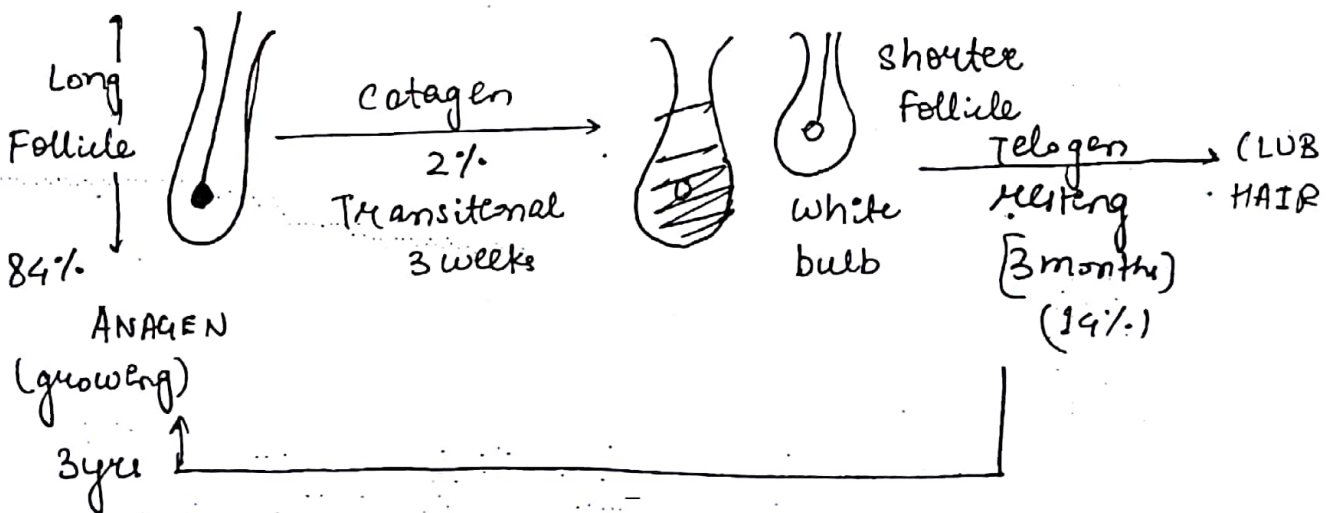 Long
Follicle
84%
ANAGEN
(growing)
3yrs
Catagen
2%
Transitional
3 weeks
shorter
Follicle
white
bulb
Telogen
resting
[3 months]
(14%)
CLUB
HAIR